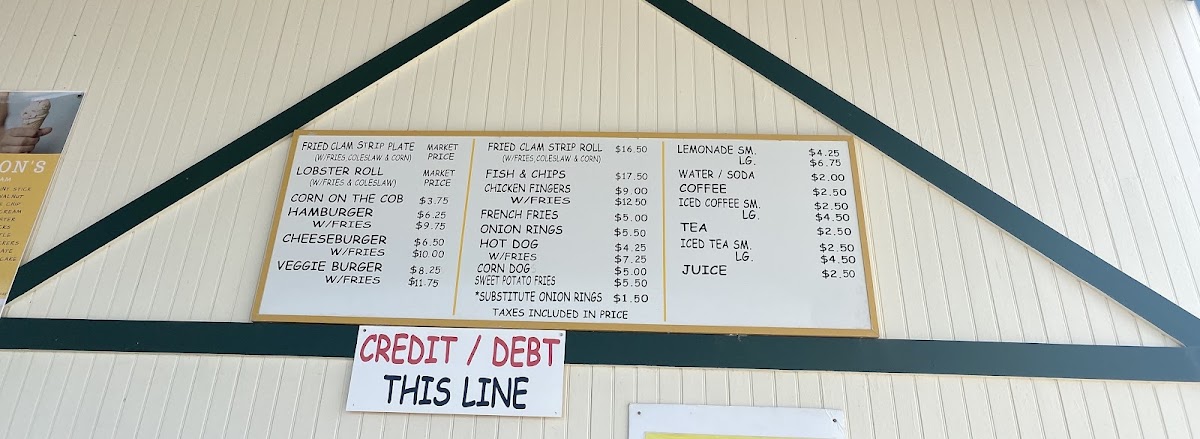 ON'S
FRIED CLAM STRIP PLATE MARKET PRICE
(W/FRIES, COLESLAW & CORN)
LOBSTER ROLL MARKET PRICE
(W/FRIES & COLESLAW)
CORN ON THE COB $3.75
HAMBURGER $6.25
W/FRIES $9.75
CHEESEBURGER $6.50
W/FRIES $10.00
VEGGIE BURGER $8.25
W/FRIES $11.75
FRIED CLAM STRIP ROLL $16.50
(W/FRIES, COLESLAW & CORN)
FISH & CHIPS $17.50
CHICKEN FINGERS $9.00
W/FRIES $12.50
FRENCH FRIES $5.00
ONION RINGS $5.50
HOT DOG $4.25
W/FRIES $7.25
CORN DOG $5.00
SWEET POTATO FRIES $5.50
*SUBSTITUTE ONION RINGS $1.50
TAXES INCLUDED IN PRICE
LEMONADE SM. $4.25
LG. $6.75
WATER / SODA $2.00
COFFEE $2.50
ICED COFFEE SM. $2.50
LG. $4.50
TEA $2.50
ICED TEA SM. $2.50
LG. $4.50
JUICE $2.50
CREDIT / DEBT
THIS LINE